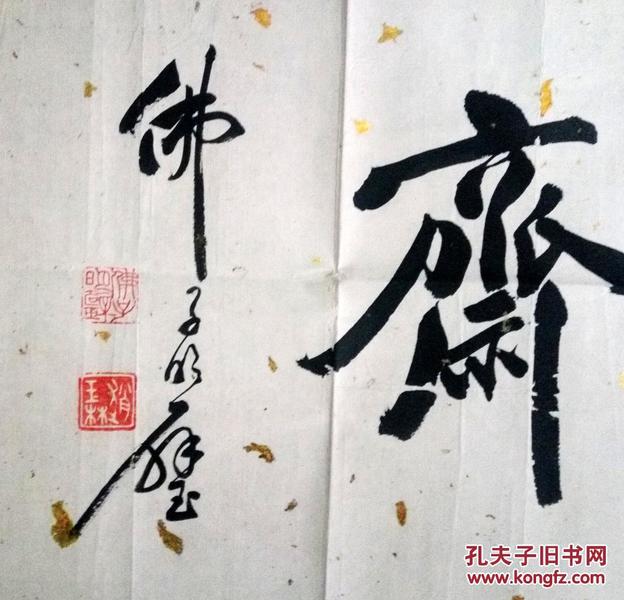 齋
佛子明璧
孔夫子旧书网
www.kongfz.com